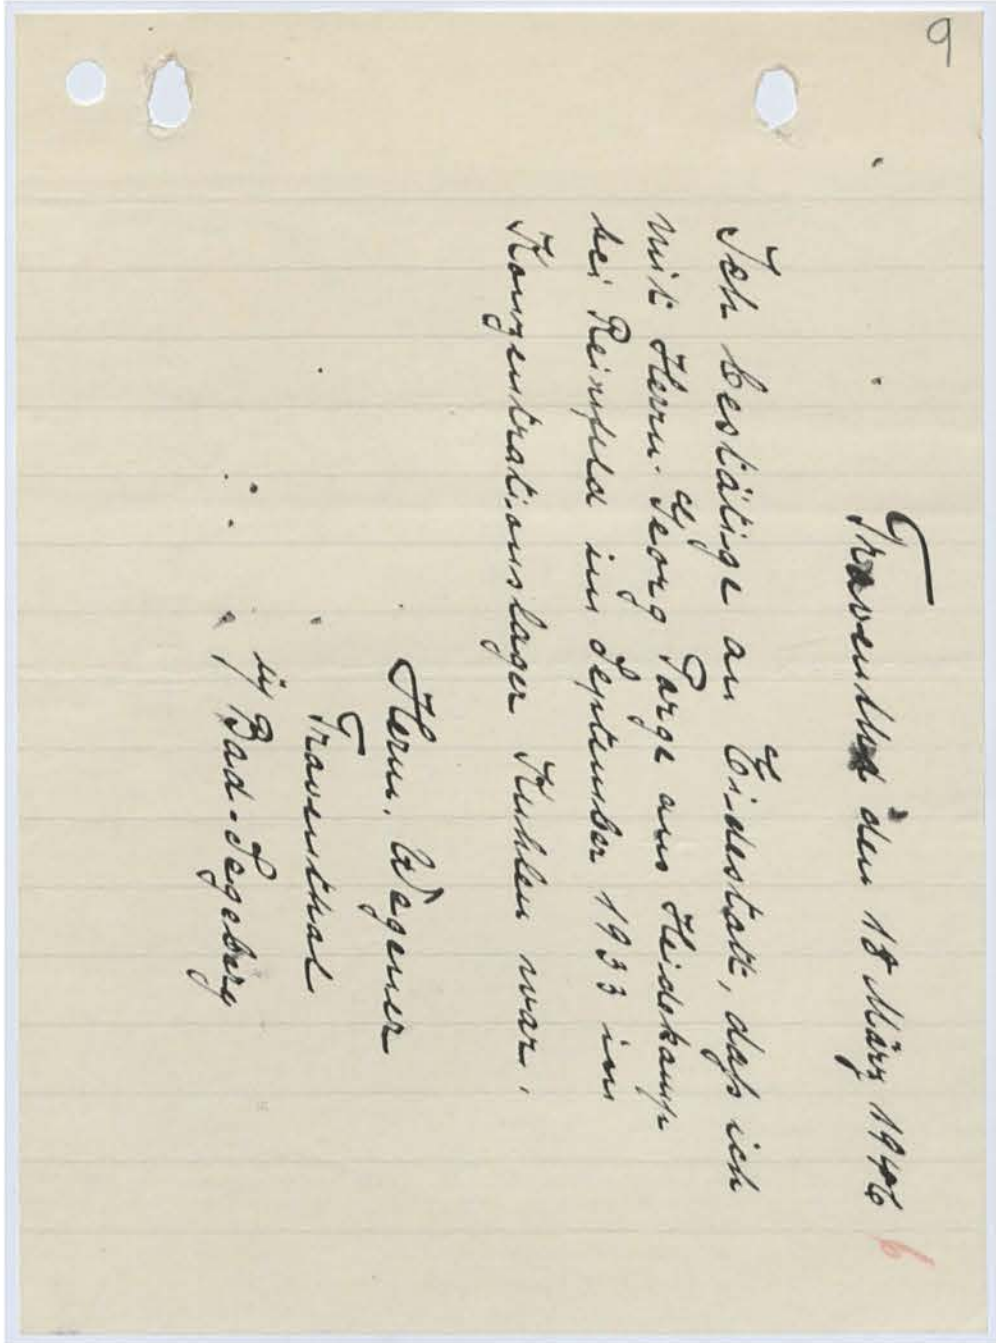 9
Traventhal den 18 März 1946
6
Ich bestätige an Eidestatt, daß ich
mit Herrn Georg Parge aus Heidekamp
bei Reinfeld im September 1933 im
Konzentrationslager Kuhlen war.
Herm. Wegener
Traventhal
Bad-Segeberg